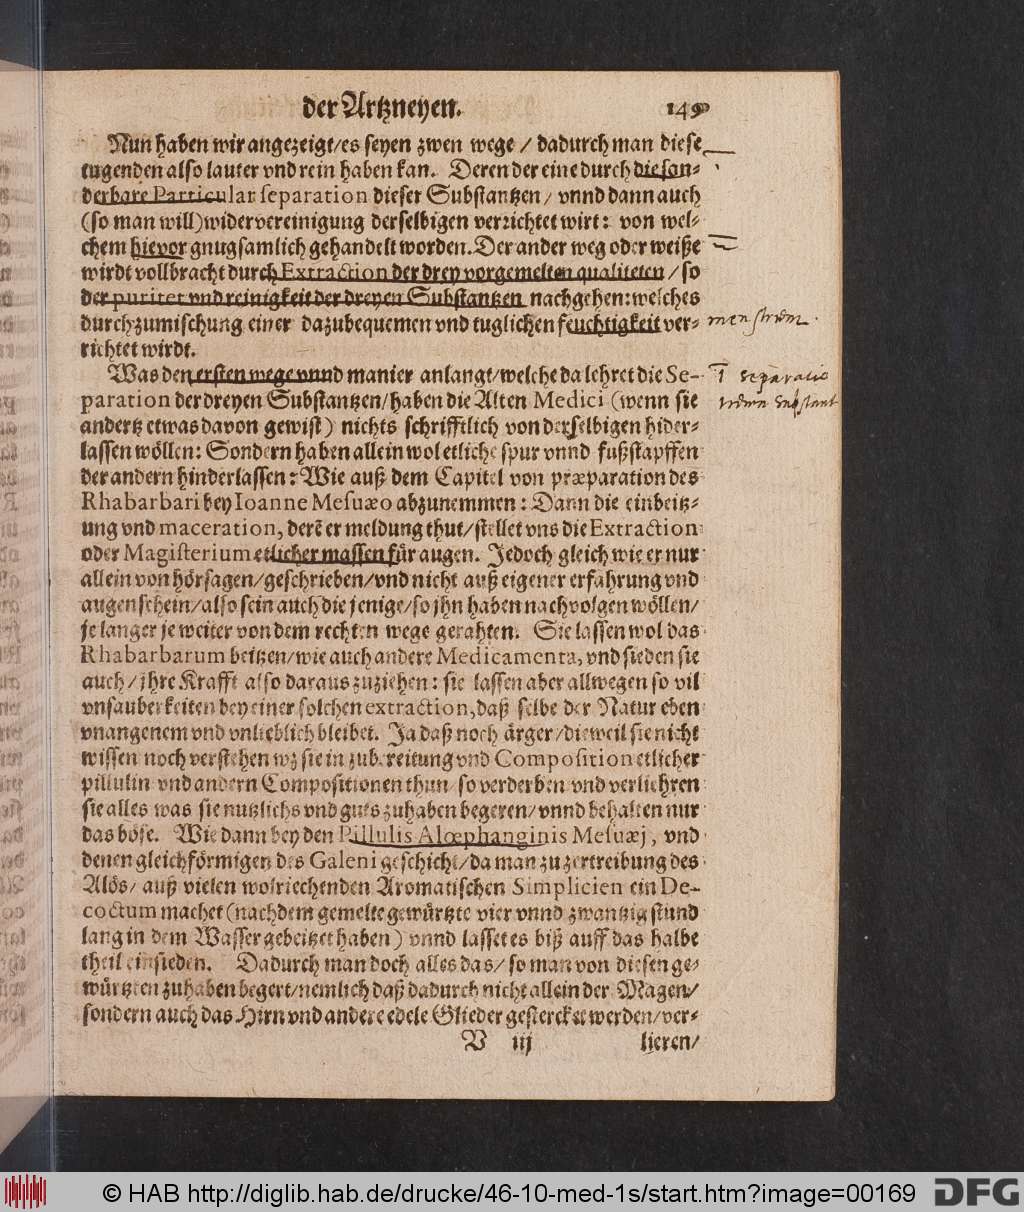 der Artzneyen. 149
Nun haben wir angezeigt/es seyen zwen wege / dadurch man diese
tugenden also lauter vnd rein haben kan. Deren der eine durch die son-
derbare Particular separation dieser Substantzen / vnnd dann auch
(so man will) widervereinigung derselbigen verrichtet wirt: von wel-
chem hievor gnugsamlich gehandelt worden. Der ander weg oder weiße
wirdt vollbracht durch Extraction der drey vorgemelten qualiteten / so
der puritet vnd reinigkeit der dreyen Substantzen nachgehen: welches
durch zumischung einer dazu bequemen vnd tuglichen feuchtigkeit ver-
menstruum.
richtet wirdt.
Was den ersten wege vnnd manier anlangt/welche da lehret die Se-
1 separatio
paration der dreyen Substantzen/haben die Alten Medici (wenn sie
trium substant
andertz etwas davon gewist) nichts schrifftlich von derselbigen hider-
lassen wöllen: Sondern haben allein wol etliche spur vnnd fußstapffen
der andern hinderlassen: Wie auß dem Capitel von præparation des
Rhabarbari bey Ioanne Mesuæo abzunemmen: Dann die einbeitz-
ung vnd maceration, derẽ er meldung thut/stellet vns die Extraction
oder Magisterium etlicher massen für augen. Jedoch gleich wie er nur
allein von hörsagen/geschrieben/vnd nicht auß eigener erfahrung vnd
augenschein/also sein auch die jenige/so jhn haben nachvolgen wöllen/
je langer je weiter von dem rechten wege gerahten. Sie lassen wol das
Rhabarbarum beitzen/wie auch andere Medicamenta, vnd sieden sie
auch/jhre Krafft also daraus zuziehen: sie lassen aber allwegen so vil
vnsauberkeiten bey einer solchen extraction, daß selbe der Natur eben
vnangenem vnd vnlieblich bleibet. Ja daß noch ärger/dieweil sie nicht
wissen noch verstehen wz sie in zubereitung vnd Composition etlicher
pillulin vnd andern Compositionen thun/so verderben vnd verliehren
sie alles was sie nutzlichs vnd guts zuhaben begeren/vnnd behalten nur
das böse. Wie dann bey den Pillulis Alœphanginis Mesuæj, vnd
denen gleichförmigen des Galeni geschicht/da man zu zertreibung des
Alös/ auß vielen wolriechenden Aromatischen Simplicien ein De-
coctum machet (nachdem gemelte gewürtzte vier vnnd zwantzig stund
lang in dem Wasser gebeitzet haben) vnnd lasset es biß auff das halbe
theil einsieden. Dadurch man doch alles das/ so man von diesen ge-
würtzten zuhaben begert/nemlich daß dadurch nicht allein der Magen/
sondern auch das Hirn vnd andere edele Glieder gestercket werden/ver-
V iij lieren/
© HAB http://diglib.hab.de/drucke/46-10-med-1s/start.htm?image=00169
DFG